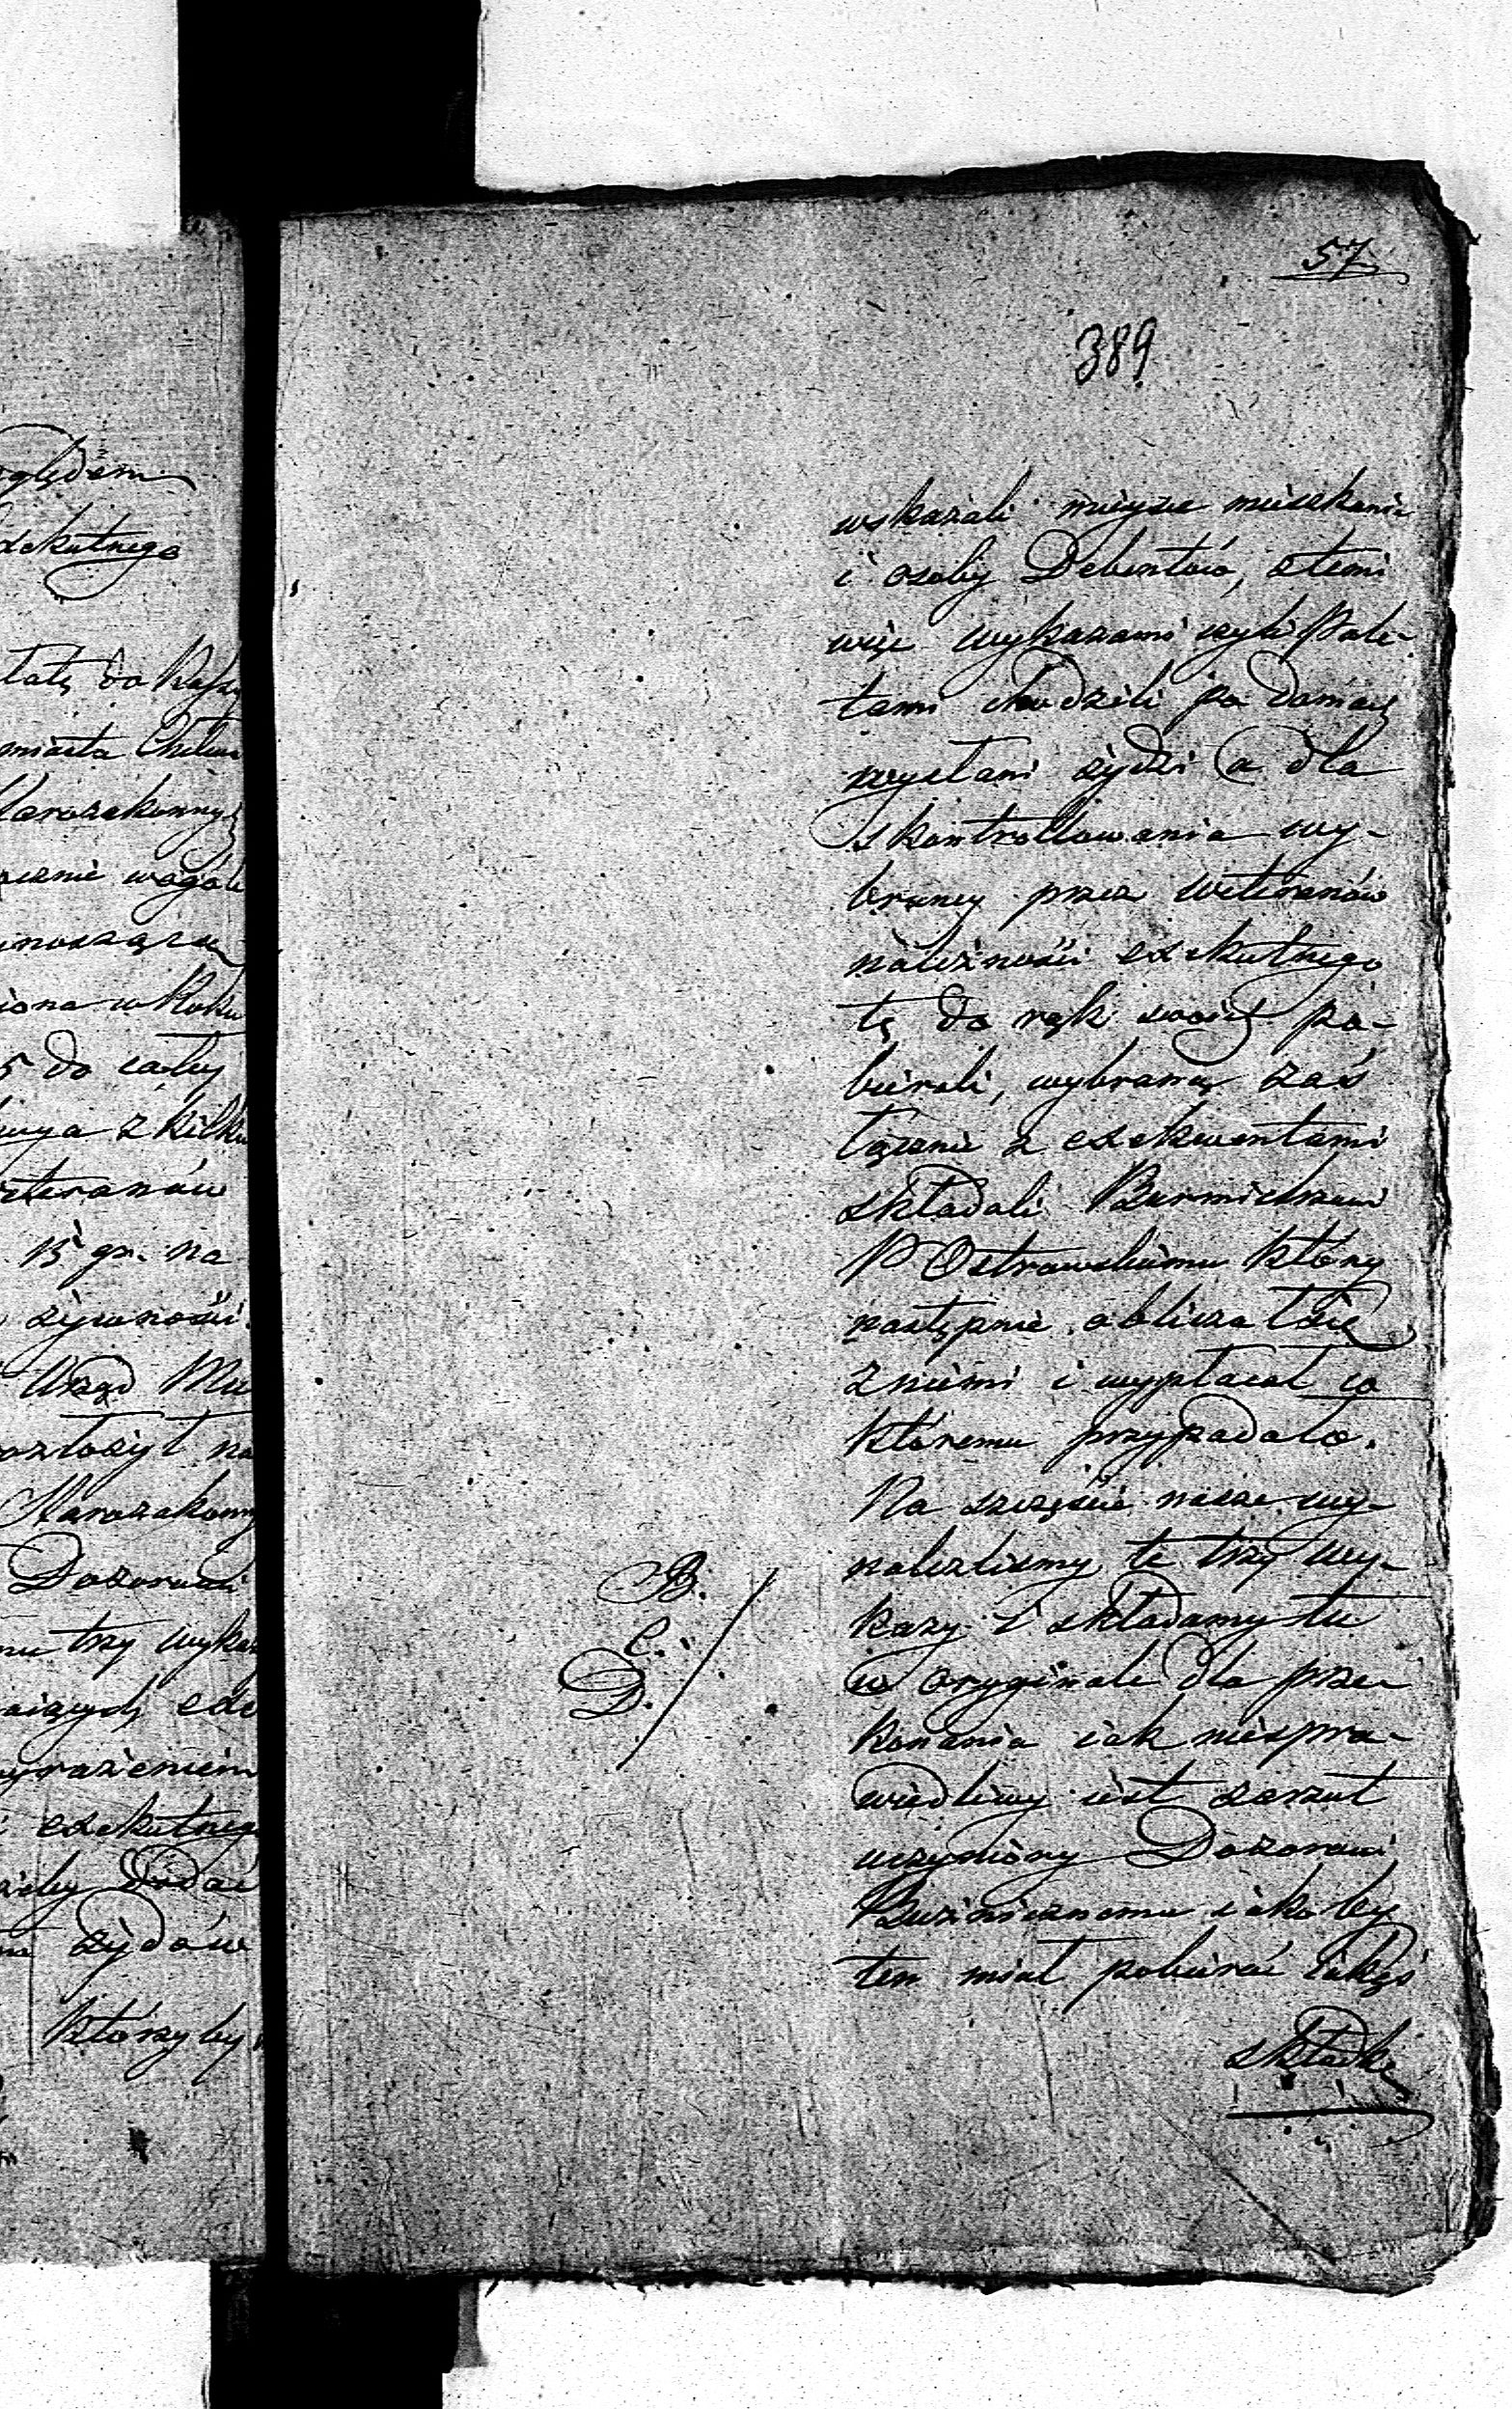 57
389
wskazali mieysce mieszkania
i osoby Debentów, z temi
więc wykazami czyli Pale-
tami chodzili po domach
wysłani żydzi a dla
skontrollowania wy-
braney przez Weteranów
należności exekutnego
tę do rąk swoich po-
bierali, wybraną zaś
łącznie z exekwentami
składali Burmistrzowi
P Ostrowskiemu który
następnie obliczał się
z niemi i wypłacał co
któremu przypadało.
Na szczęście nasze wy-
nalezliśmy te trzy wy-
kazy i składamy tu
w oryginale dla prze-
konania iak niespra-
wiedliwy iest zarzut
uczyniony Dozorowi
Bużnicznemu iakoby
ten miał pobierać iakąś
składkę
B.
C.
D.
ględem
exekutnego
łatę do Kassy
miasta Chełma
Starozakonnych
ocznie wogóle
wynosząca
iona w Roku
5 do całey
z kilku
eteranów
15 gr. na
żywności.
Urząd Mu
ozłożył na
Starozakonn
Dozorowi
mu trzy wykaz
exe
yrażeniem
exekutnego
dodać
żydów
którzyby